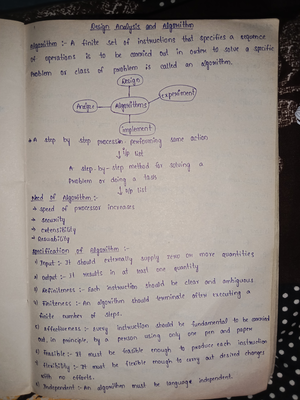 Design Analysis and Algorithm
Algorithm :- A finite set of instructions that specifies a sequence
of operations is to be carried out in order to solve a specific
problem or class of problem is called an algorithm.
Design
Analyze
Algorithms
Experiment
implement
A step by step processin performing some action
↓ i/p list
A step-by-step method for solving a
problem or doing a task
↓ o/p list
Need of Algorithm :-
→ speed of processor increases
→ security
→ extensibility
→ Reusability
Specification of algorithm :-
1) Input :- It should externally supply zero or more quantities
2) output :- It results in at least one quantity
3) Definiteness :- Each instruction should be clear and ambiguous
4) Finiteness :- An algorithm should terminate after executing a
finite number of steps.
5) Effectiveness :- every instruction should be fundamental to be carried
out, in principle, by a person using only one pen and paper
6) feasible :- It must be feasible enough to produce each instruction
7) flexibility :- It must be flexible enough to carry out desired changes
with no efforts.
8) Independent :- An algorithm must be language independent.